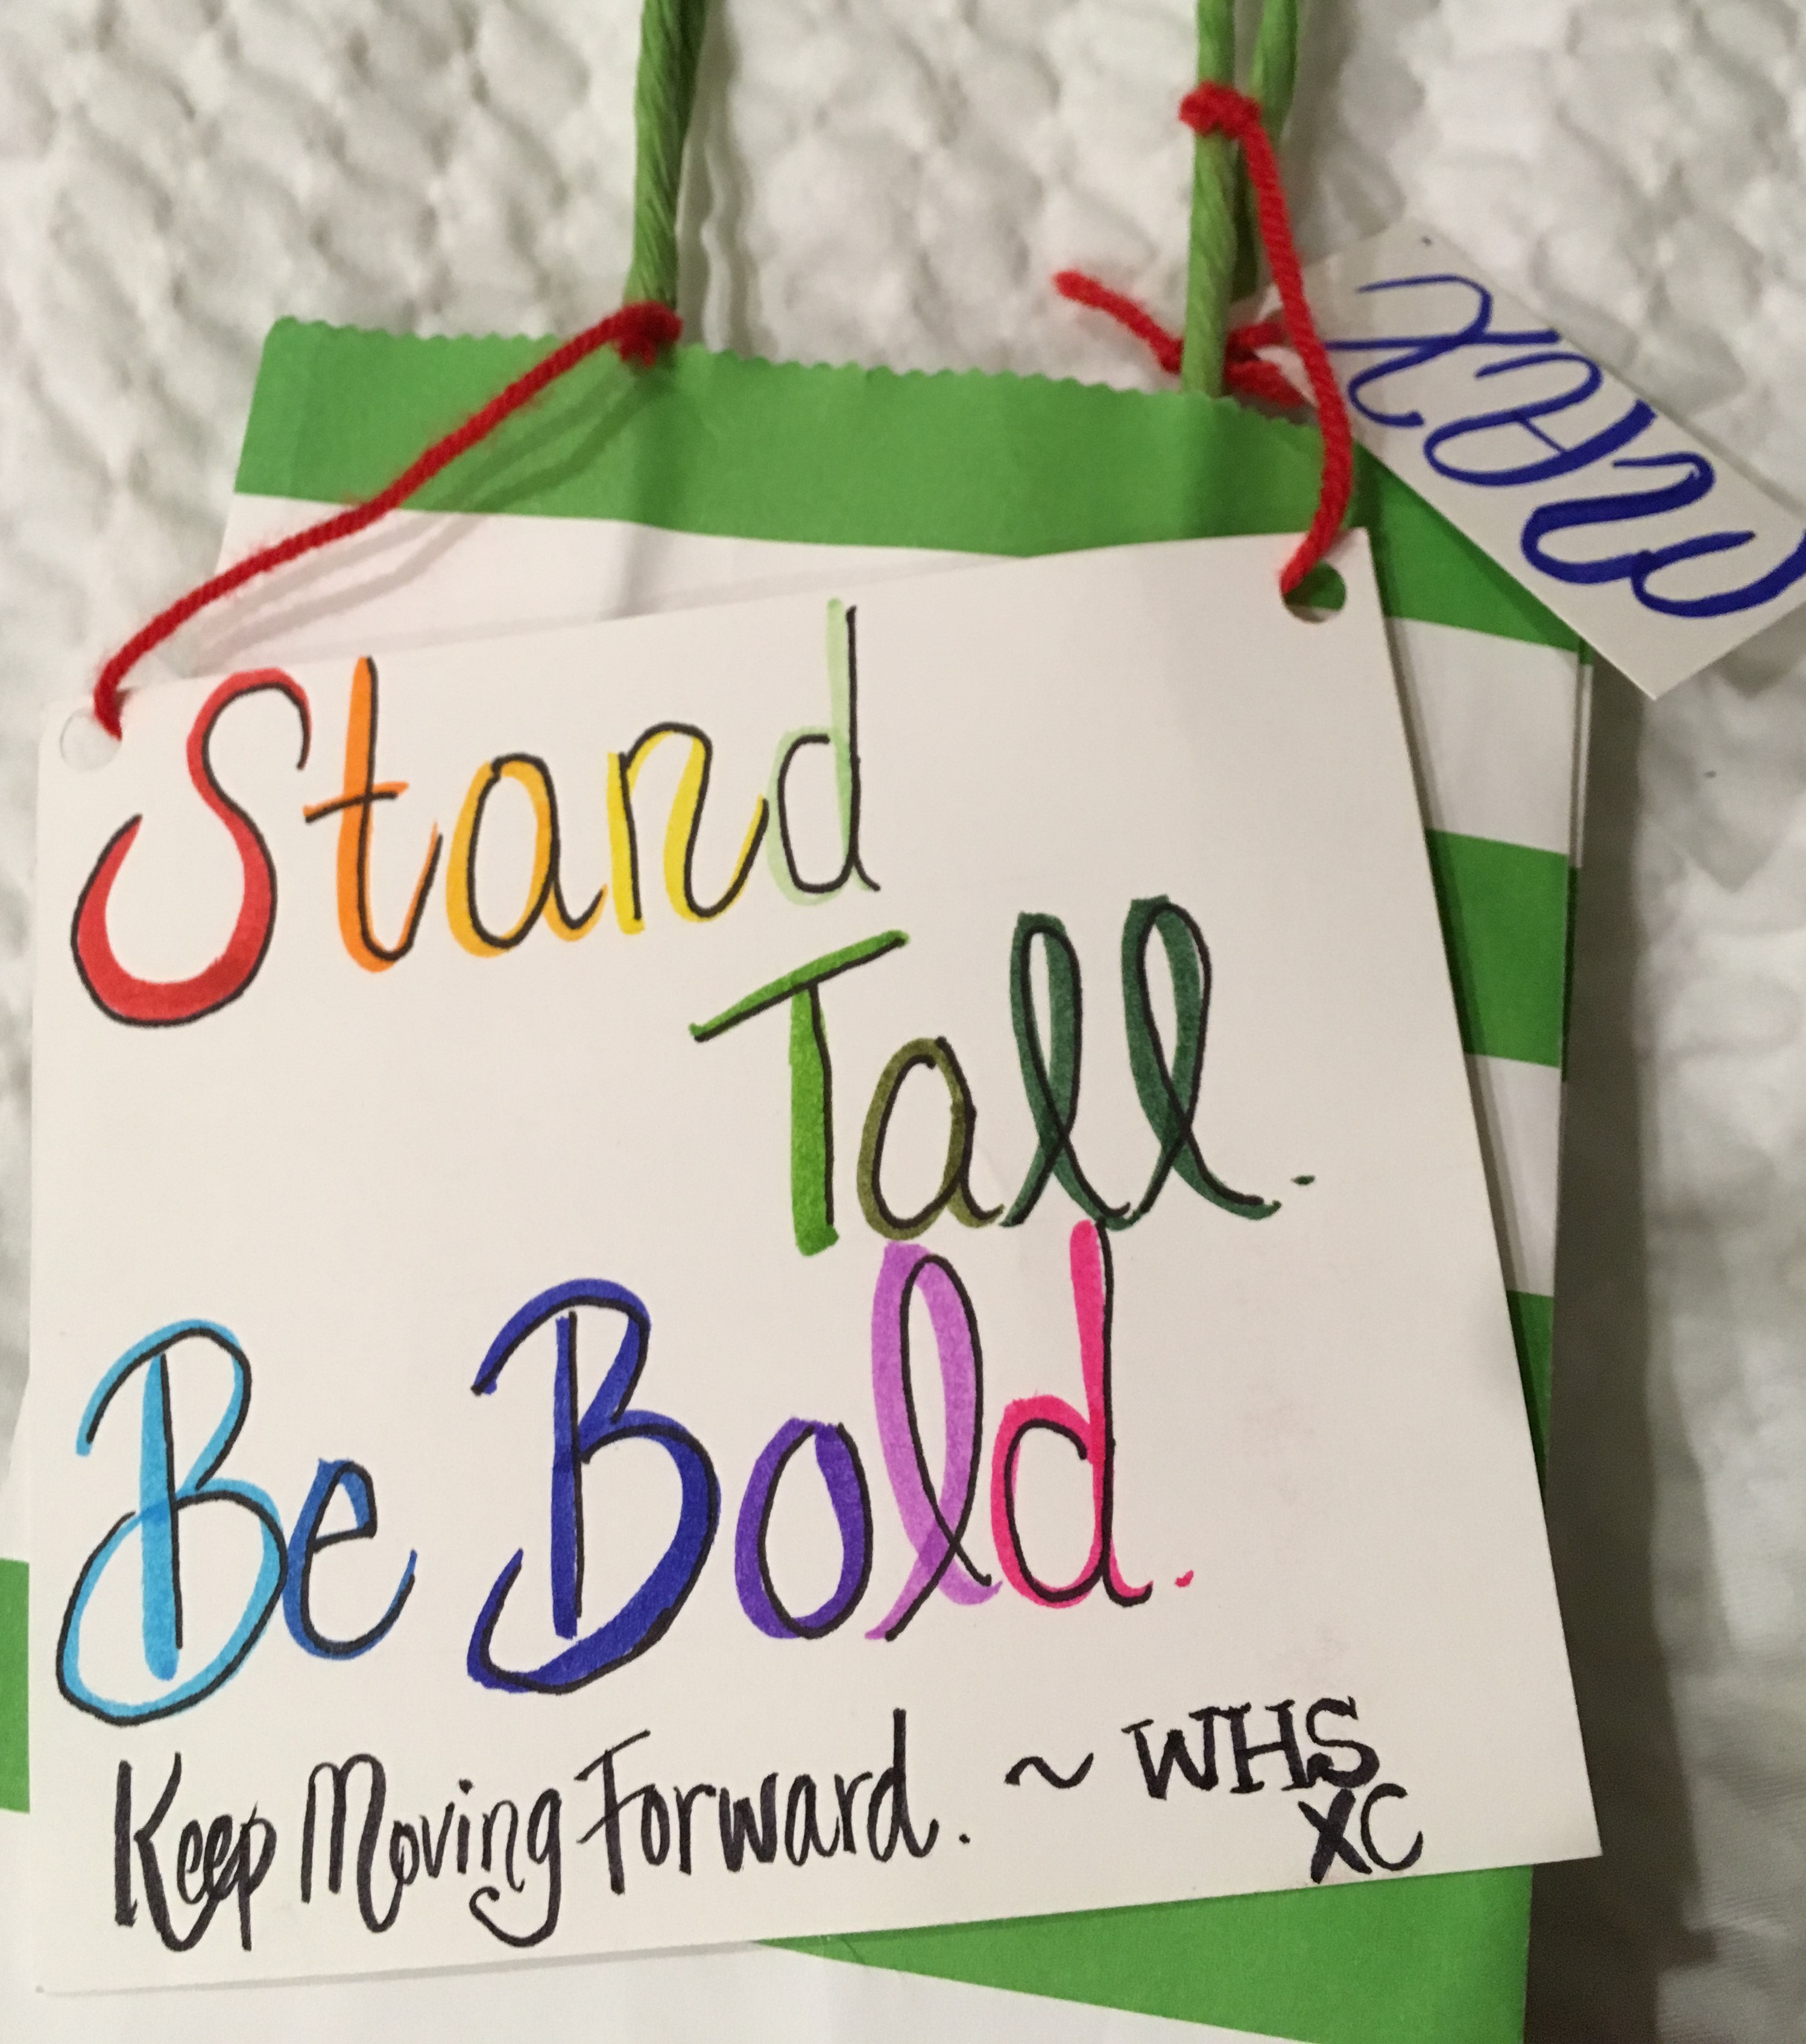 Stand
Tall.
Be Bold.
Keep Moving Forward. ~ WHS
XC